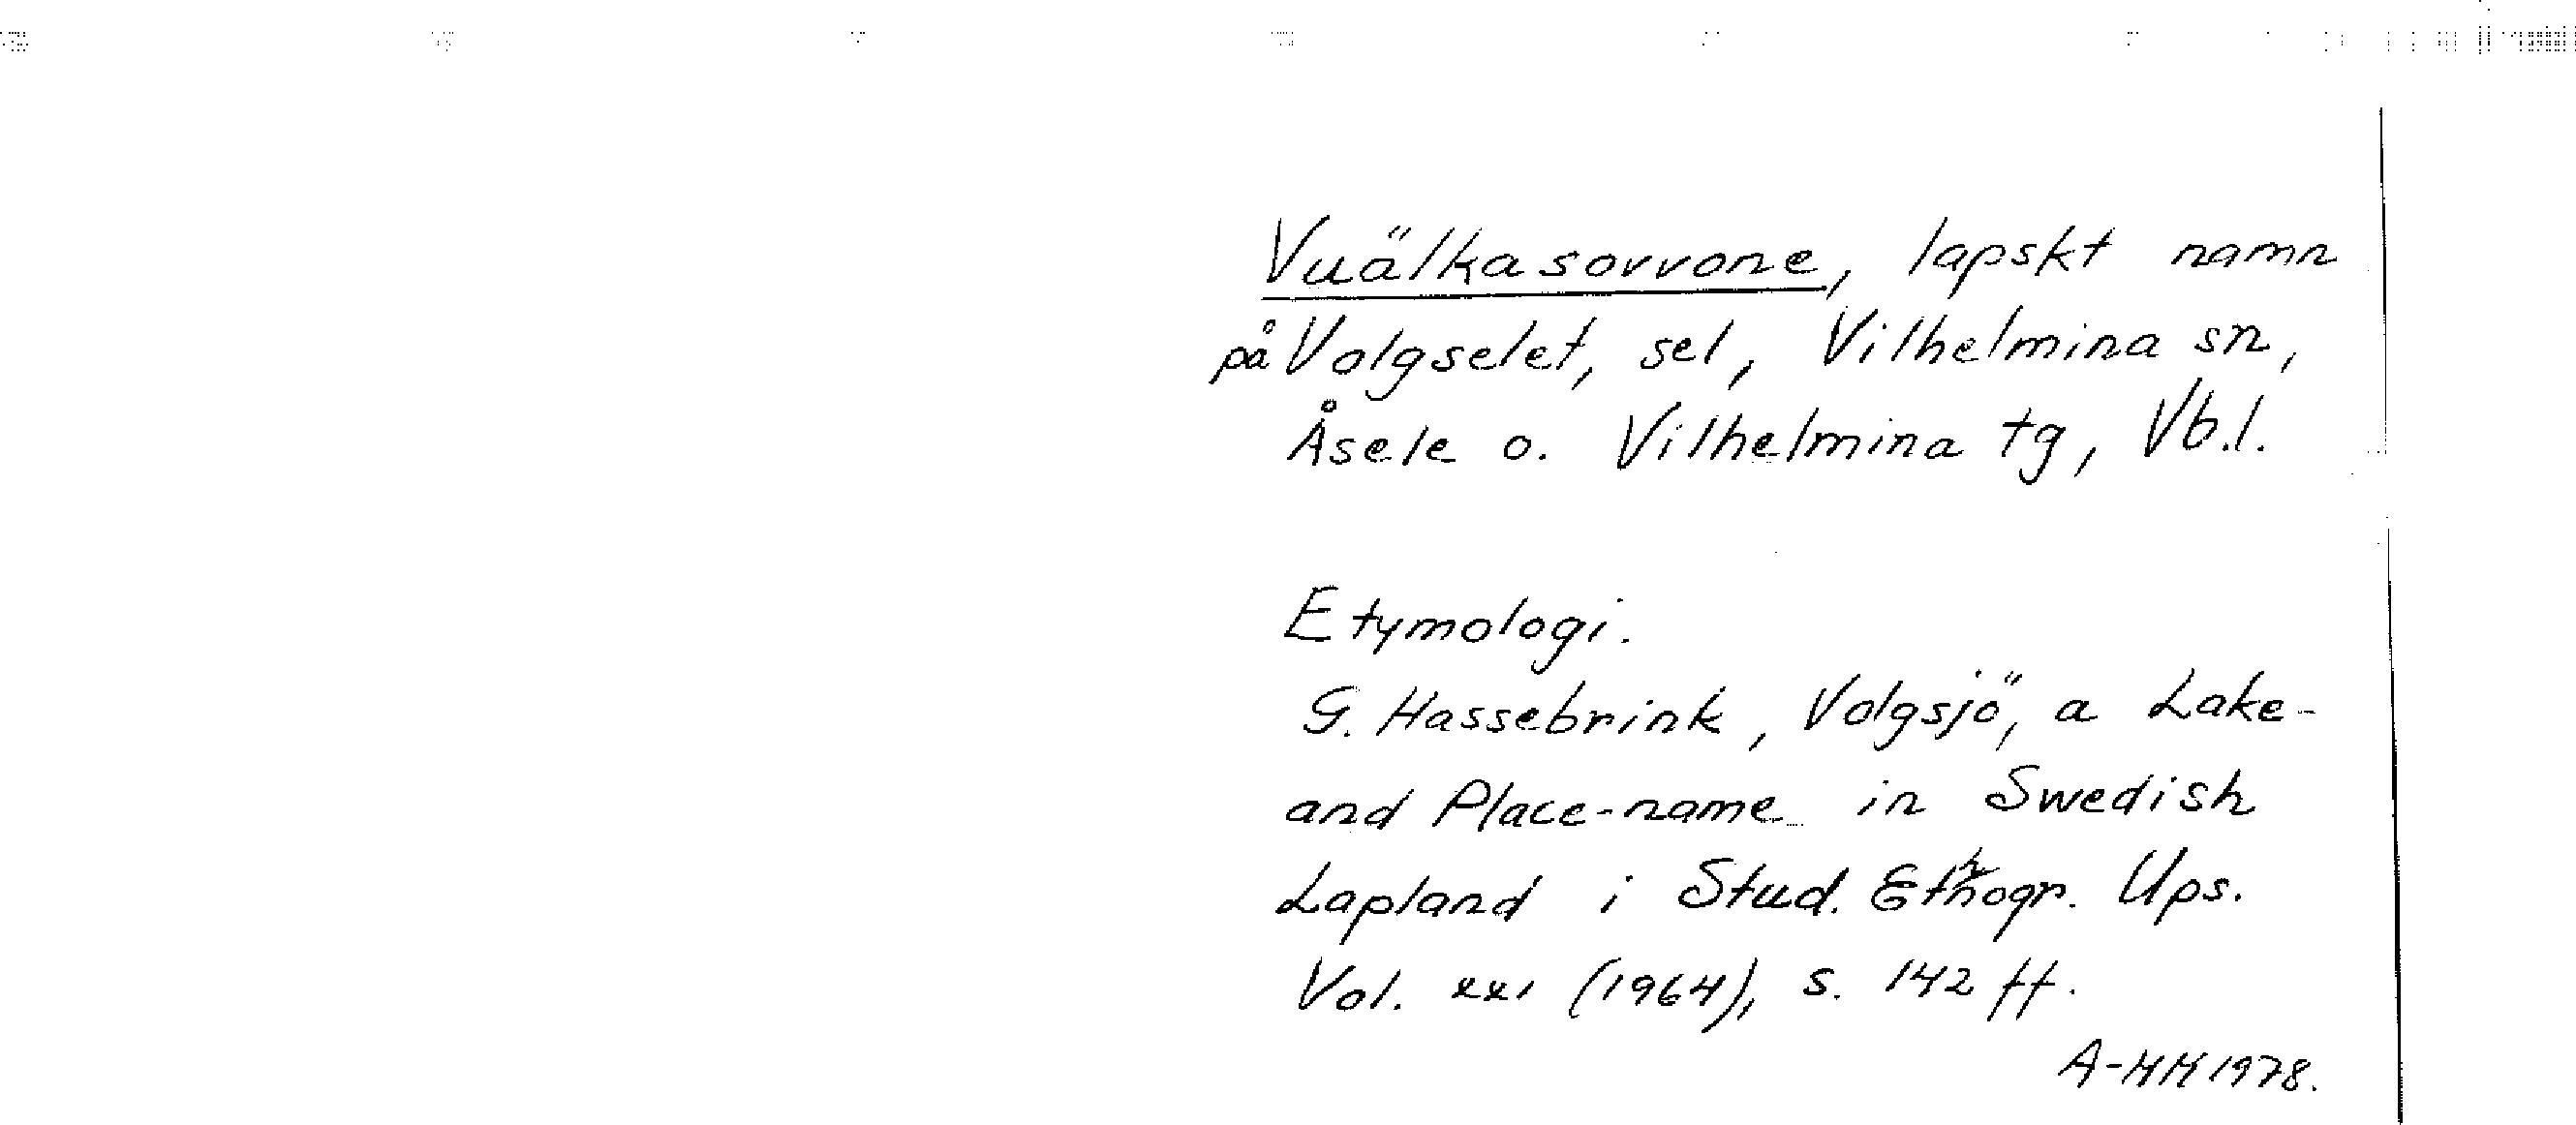 Vuälkasovvone, lapskt namn
på Volgselet, sel, Vilhelmina sn,
Åsele o. Vilhelmina tg, Vb.l.
Etymologi.
G. Hassebrink, Volgsjö, a Lake-
and Place-name in Swedish
Lapland i Stud. Ethnogr. Ups.
Vol. xxi (1964), s. 142 ff.
A-MM 1978.